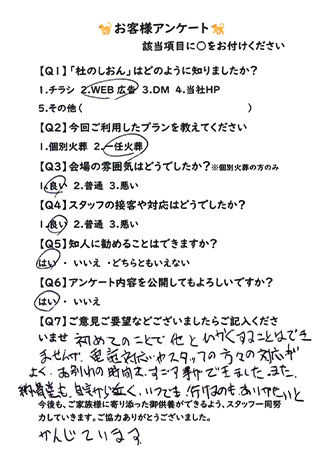 お客様アンケート
該当項目に○をお付けください
【Q1】「杜のしおん」はどのように知りましたか？
1.チラシ 2.WEB広告 3.DM 4.当社HP
5.その他( )
【Q2】今回ご利用したプランを教えてください
1.個別火葬 2.一任火葬
【Q3】会場の雰囲気はどうでしたか？※個別火葬の方のみ
1.良い 2.普通 3.悪い
【Q4】スタッフの接客や対応はどうでしたか？
1.良い 2.普通 3.悪い
【Q5】知人に勧めることはできますか？
はい・いいえ・どちらともいえない
【Q6】アンケート内容を公開してもよろしいですか？
はい・いいえ
【Q7】ご意見ご要望などございましたらご記入くださ
いませ 初めてのことで他とひかくすることはでき
ませんが、電話対応やスタッフの方々の対応が
よく、お別れの時間も、すごす事ができました。また
納骨堂も、自宅から近く、いつでも行けるのもありがたいと
今後も、ご家族様に寄り添った御供養ができるよう、スタッフ一同努
力していきます。ご協力ありがとうございました。
かんじています